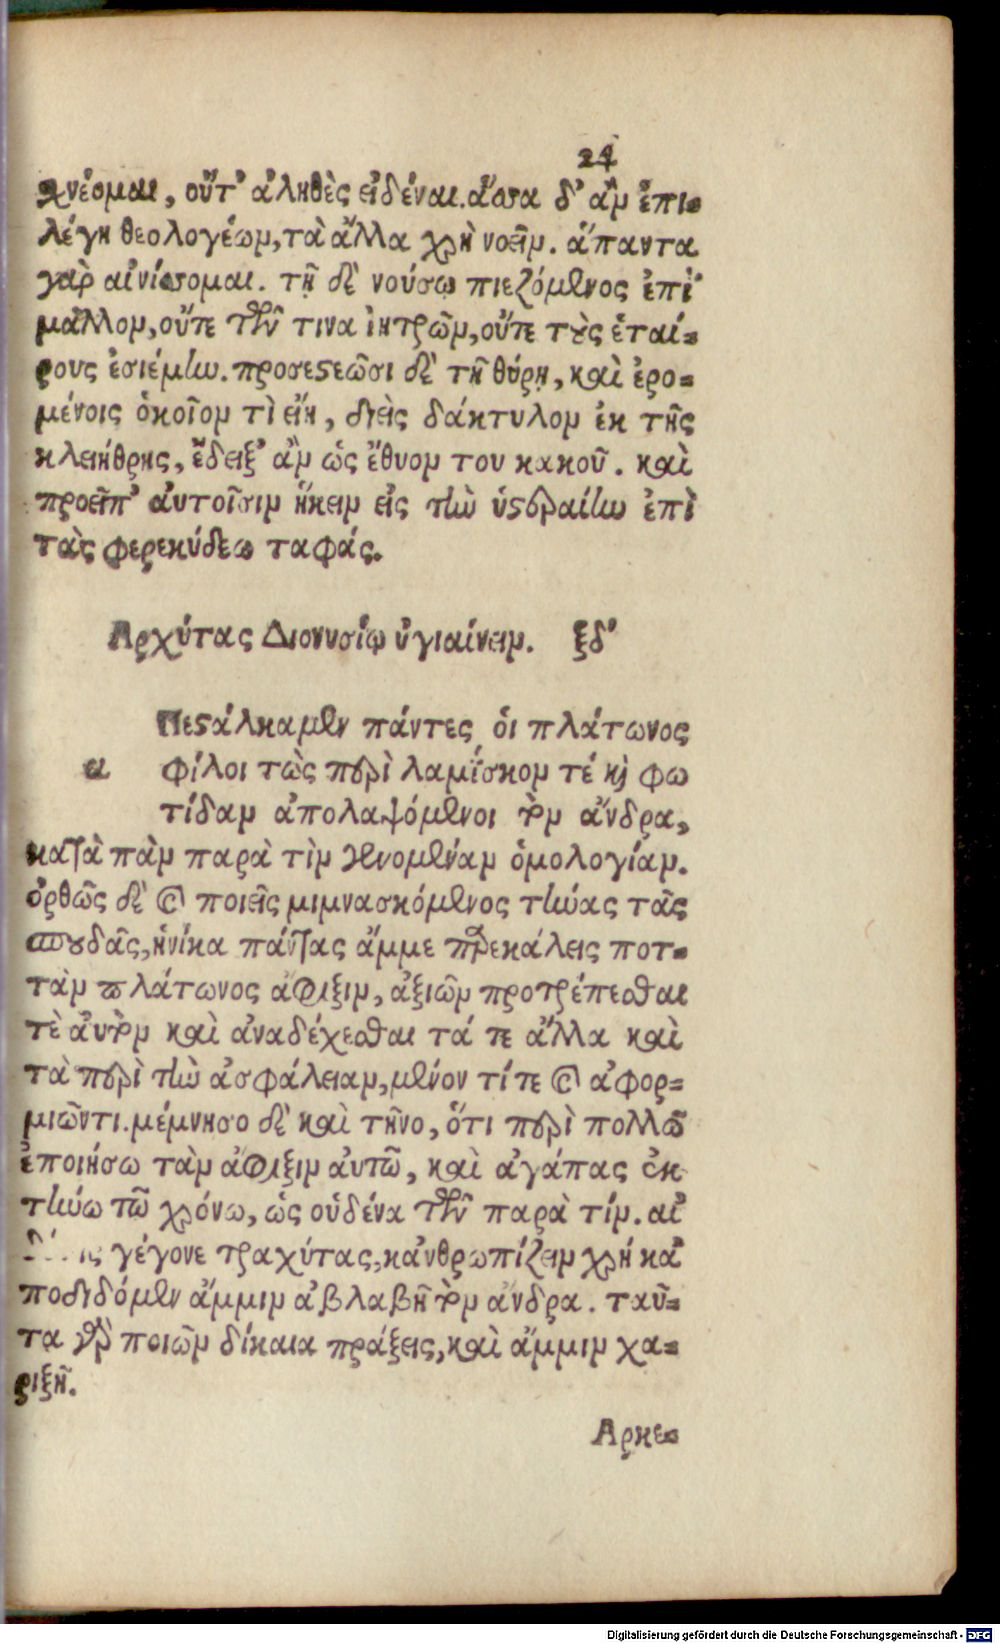 24
χνέομαι, οὔτ' ἀληθὲς εἰδέναι. ἅσσα δ' ἂμ ἐπι-
λέγη θεολογέωμ, τὰ ἄλλα χρὴ νοεῖμ. ἅπαντα
γὰρ αἰνίσσομαι. τῇ δὲ νούσῳ πιεζόμενος ἐπὶ
μᾶλλομ, οὔτε τῶν τινα ἰητρῶμ, οὔτε τοὺς ἑταί-
ρους ἐσιέμην. προσεστεῶσι δὲ τῇ θύρῃ, καὶ ἐρο-
μένοις ὁκοῖομ τὶ εἴη, διεὶς δάκτυλομ ἐκ τῆς
κλειήθρης, ἔδειξ' ἂμ ὡς ἔθυομ του κακοῦ. καὶ
προεῖπ' ἀυτοῖσιμ ἥκειμ εἰς τὴν ὑστεραίην ἐπὶ
τὰς φερεκύδεω ταφάς.
Αρχύτας Διονυσίῳ ὑγιαίνειμ. ξδ'
Πεστάλκαμεν πάντες οἱ πλάτωνος
α φίλοι τὼς περὶ λαμίσκομ τέ καὶ φω
τίδαμ ἀπολαψόμενοι τὸμ ἄνδρα,
κατὰ πὰμ παρὰ τὶμ γενομέναμ ὁμολογίαμ.
ὀρθῶς δέ κα ποιεῖς μιμνασκόμενος τήνας τᾶς
σπουδᾶς, ἡνίκα πάντας ἄμμε παρεκάλεις ποτ-
τὰμ πλάτωνος ἄφιξιμ, ἀξιῶμ προτρέπεσθαι
τὲ ἀυτὸμ καὶ ἀναδέχεσθαι τά τε ἄλλα καὶ
τὰ περὶ τὴν ἀσφάλειαμ, μένον τί τε κα ἀφορ-
μιῶντι. μέμνησο δὲ καὶ τῆνο, ὅτι περὶ πολλῶ
ἐποιήσω τὰμ ἄφιξιμ ἀυτῶ, καὶ ἀγάπας ἐκ
τήνω τῶ χρόνω, ὡς οὐδένα τῶν παρὰ τίμ. αἰ
γέγονε τραχύτας, κἀνθρωπίζειμ χρή κἀ
ποδιδόμεν ἄμμιμ ἀβλαβῆ τὸμ ἄνδρα. ταῦ-
τα γὰρ ποιῶμ δίκαια πράξεις, καὶ ἄμμιμ χα-
ριξῇ.
Αρκε-
Digitalisierung gefördert durch die Deutsche Forschungsgemeinschaft - DFG